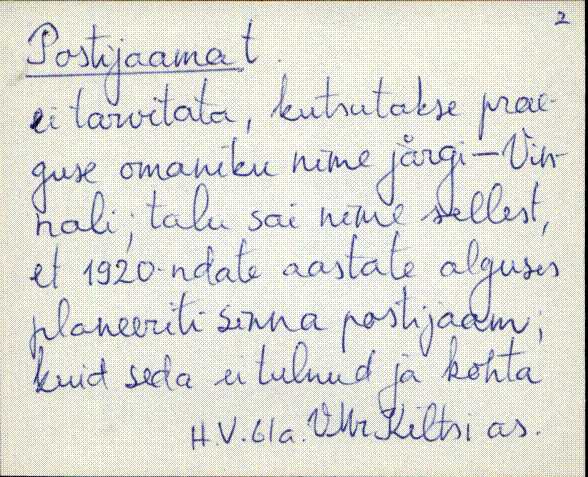 2
Postijaama t.
ei tarvitata, kutsutakse prae-
guse omaniku nime järgi – Vin-
nali; talu sai nime sellest,
et 1920-ndate aastate alguses
planeeriti sinna postijaam;
kuid seda ei tulnud ja kohta
H.V. 61a. VMr Kiltsi as.